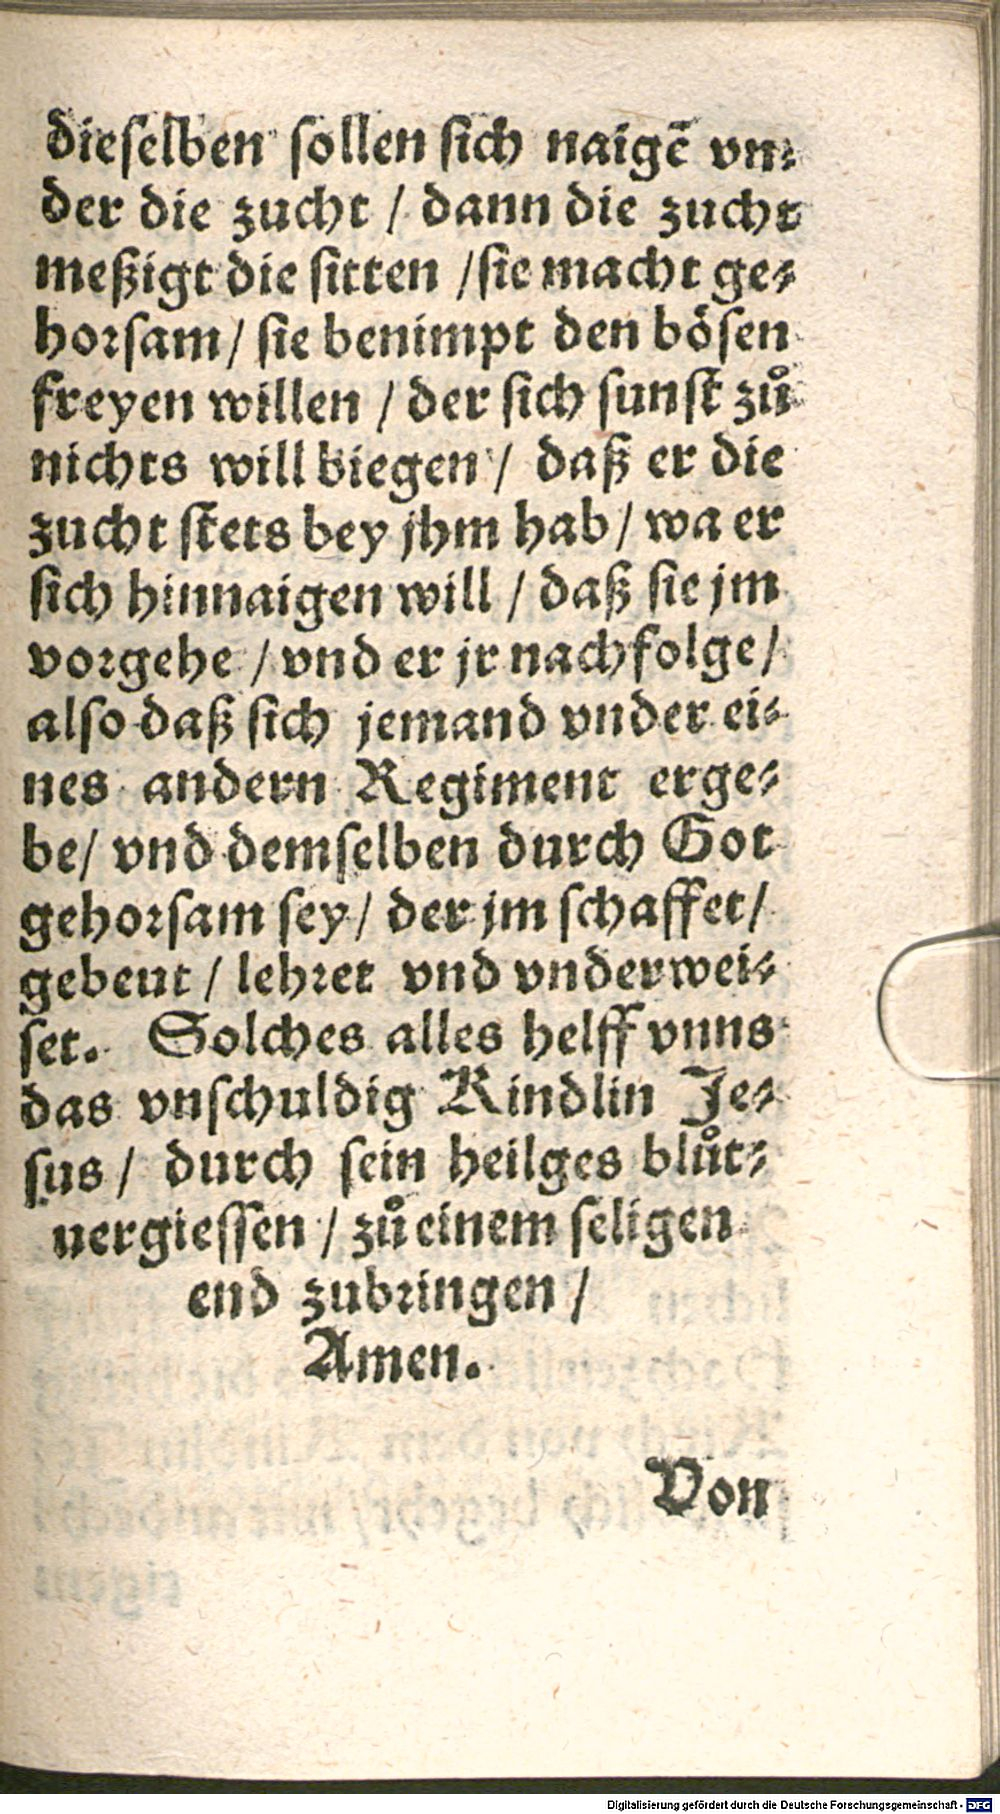 dieſelben ſollen ſich naigẽ vn⸗
der die zucht / dann die zucht
meßigt die ſitten / ſie macht ge⸗
horſam / ſie benimpt den böſen
freyen willen / der ſich ſunſt zuͦ
nichts will biegen / daß er die
zucht ſtets bey jhm hab / wa er
ſich hinnaigen will / daß ſie jm
vorgehe / vnd er jr nachfolge /
alſo daß ſich jemand vnder ei⸗
nes andern Regiment erge⸗
be / vnd demſelben durch Got
gehorſam ſey / der jm ſchaffet /
gebeut / lehret vnd vnderwei⸗
ſet. Solches alles helff vnns
das vnſchuldig Kindlin Je⸗
ſus / durch ſein heilges bluͦt⸗
uergieſſen / zuͦ einem ſeligen
end zubringen /
Amen.
Von
Digitalisierung gefördert durch die Deutsche Forschungsgemeinschaft - DFG